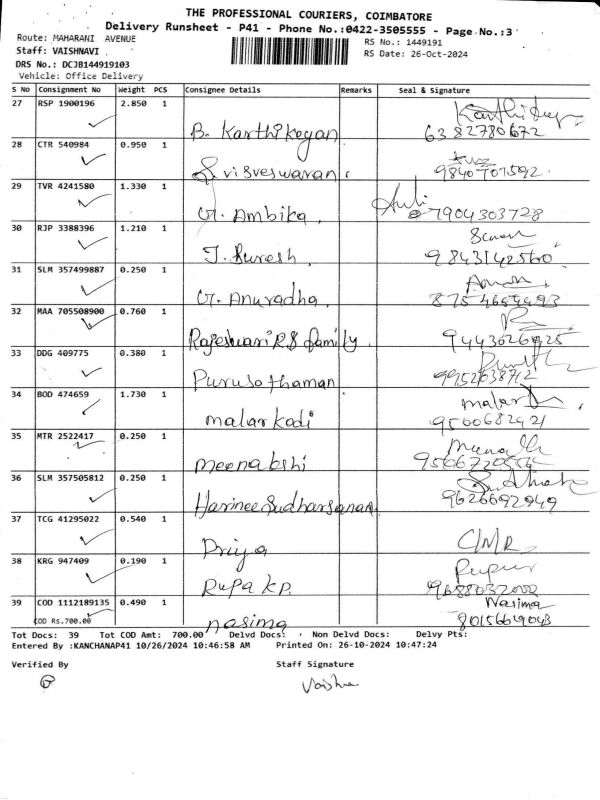 THE PROFESSIONAL COURIERS, COIMBATORE
Delivery Runsheet - P41 - Phone No.:0422-3505555 - Page No.:3
Route: MAHARANI AVENUE
RS No.: 1449191
Staff: VAISHNAVI
RS Date: 26-Oct-2024
DRS No.: DCJB144919103
Vehicle: Office Delivery
S No Consignment No Weight PCS Consignee Details Remarks Seal & Signature
27 RSP 1900196 2.850 1
B. Karthikeyan 6382780672
28 CTR 540984 0.950 1
Srisveswaran.
29 TVR 4241580 1.330 1
G. Ambika. 7904303728
30 RJP 3388396 1.210 1
J. Suresh. 9843142560
31 SLM 357499887 0.250 1
G. Anuradha.
32 MAA 705508900 0.760 1
Rajeshwari RS family.
33 DDG 409775 0.380 1
Purusothaman
34 BOD 474659 1.730 1
malarkodi 9500682421
35 MTR 2522417 0.250 1
meenakshi
36 SLM 357505812 0.250 1
HarineeSudharsanan. 9626692949
37 TCG 41295022 0.540 1
Priya
38 KRG 947409 0.190 1
Rupa K.P.
39 COD 1112189135 0.490 1 Nasima
COD Rs.700.00 nasima
Tot Docs: 39 Tot COD Amt: 700.00 Delvd Docs: Non Delvd Docs: Delvy Pts:
Entered By :KANCHANAP41 10/26/2024 10:46:58 AM Printed On: 26-10-2024 10:47:24
Verified By Staff Signature